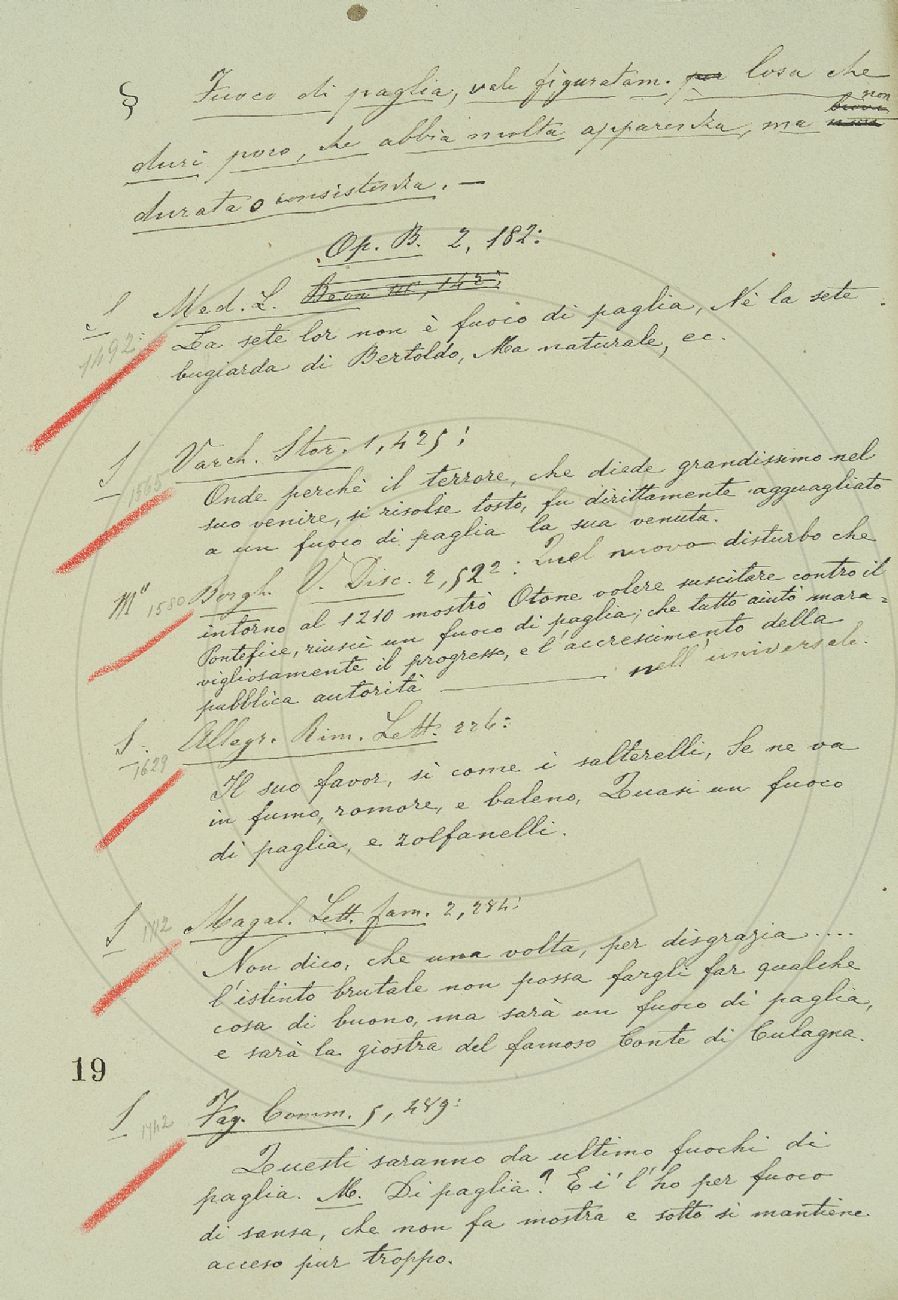 § Fuoco di paglia, vale figuratam. ~~per~~ Cosa che
duri poco, che abbia molta apparenza, ma non
durata o consistenza. —
Op. B. 2, 182:
S Med. L.
1492: La sete lor non è fuoco di paglia, Nè la sete
bugiarda di Bertoldo, Ma naturale, ec.
S Varch. Stor. 1, 425:
1565 Onde perchè il terrore, che diede grandissimo nel
suo venire, si risolse tosto, fu dirittamente agguagliato
a un fuoco di paglia la sua venuta.
Mⁿ 1580 Borgh. V. Disc. 2, 522: Quel nuovo disturbo che
intorno al 1210 mostrò Otone volere suscitare contro il
Pontefice, riuscì un fuoco di paglia; che tutto aiutò mara=
vigliosamente il progresso, e l'accrescimento della
pubblica autorità — nell'universale.
S. 1629 Allegr. Rim. Lett. 226:
Il suo favor, sì come i salterelli, Se ne va
in fumo, romore, e baleno, Quasi un fuoco
di paglia, e zolfanelli.
S 1712 Magal. Lett. fam. 2, 284:
Non dico, che una volta, per disgrazia ....
l'istinto brutale non possa fargli far qualche
cosa di buono, ma sarà un fuoco di paglia,
e sarà la giostra del famoso Conte di Culagna.
19
S 1742 Fag. Comm. 5, 289:
Questi saranno da ultimo fuochi di
paglia. M. Di paglia? E i' l'ho per fuoco
di sansa, che non fa mostra e sotto si mantiene
acceso pur troppo.